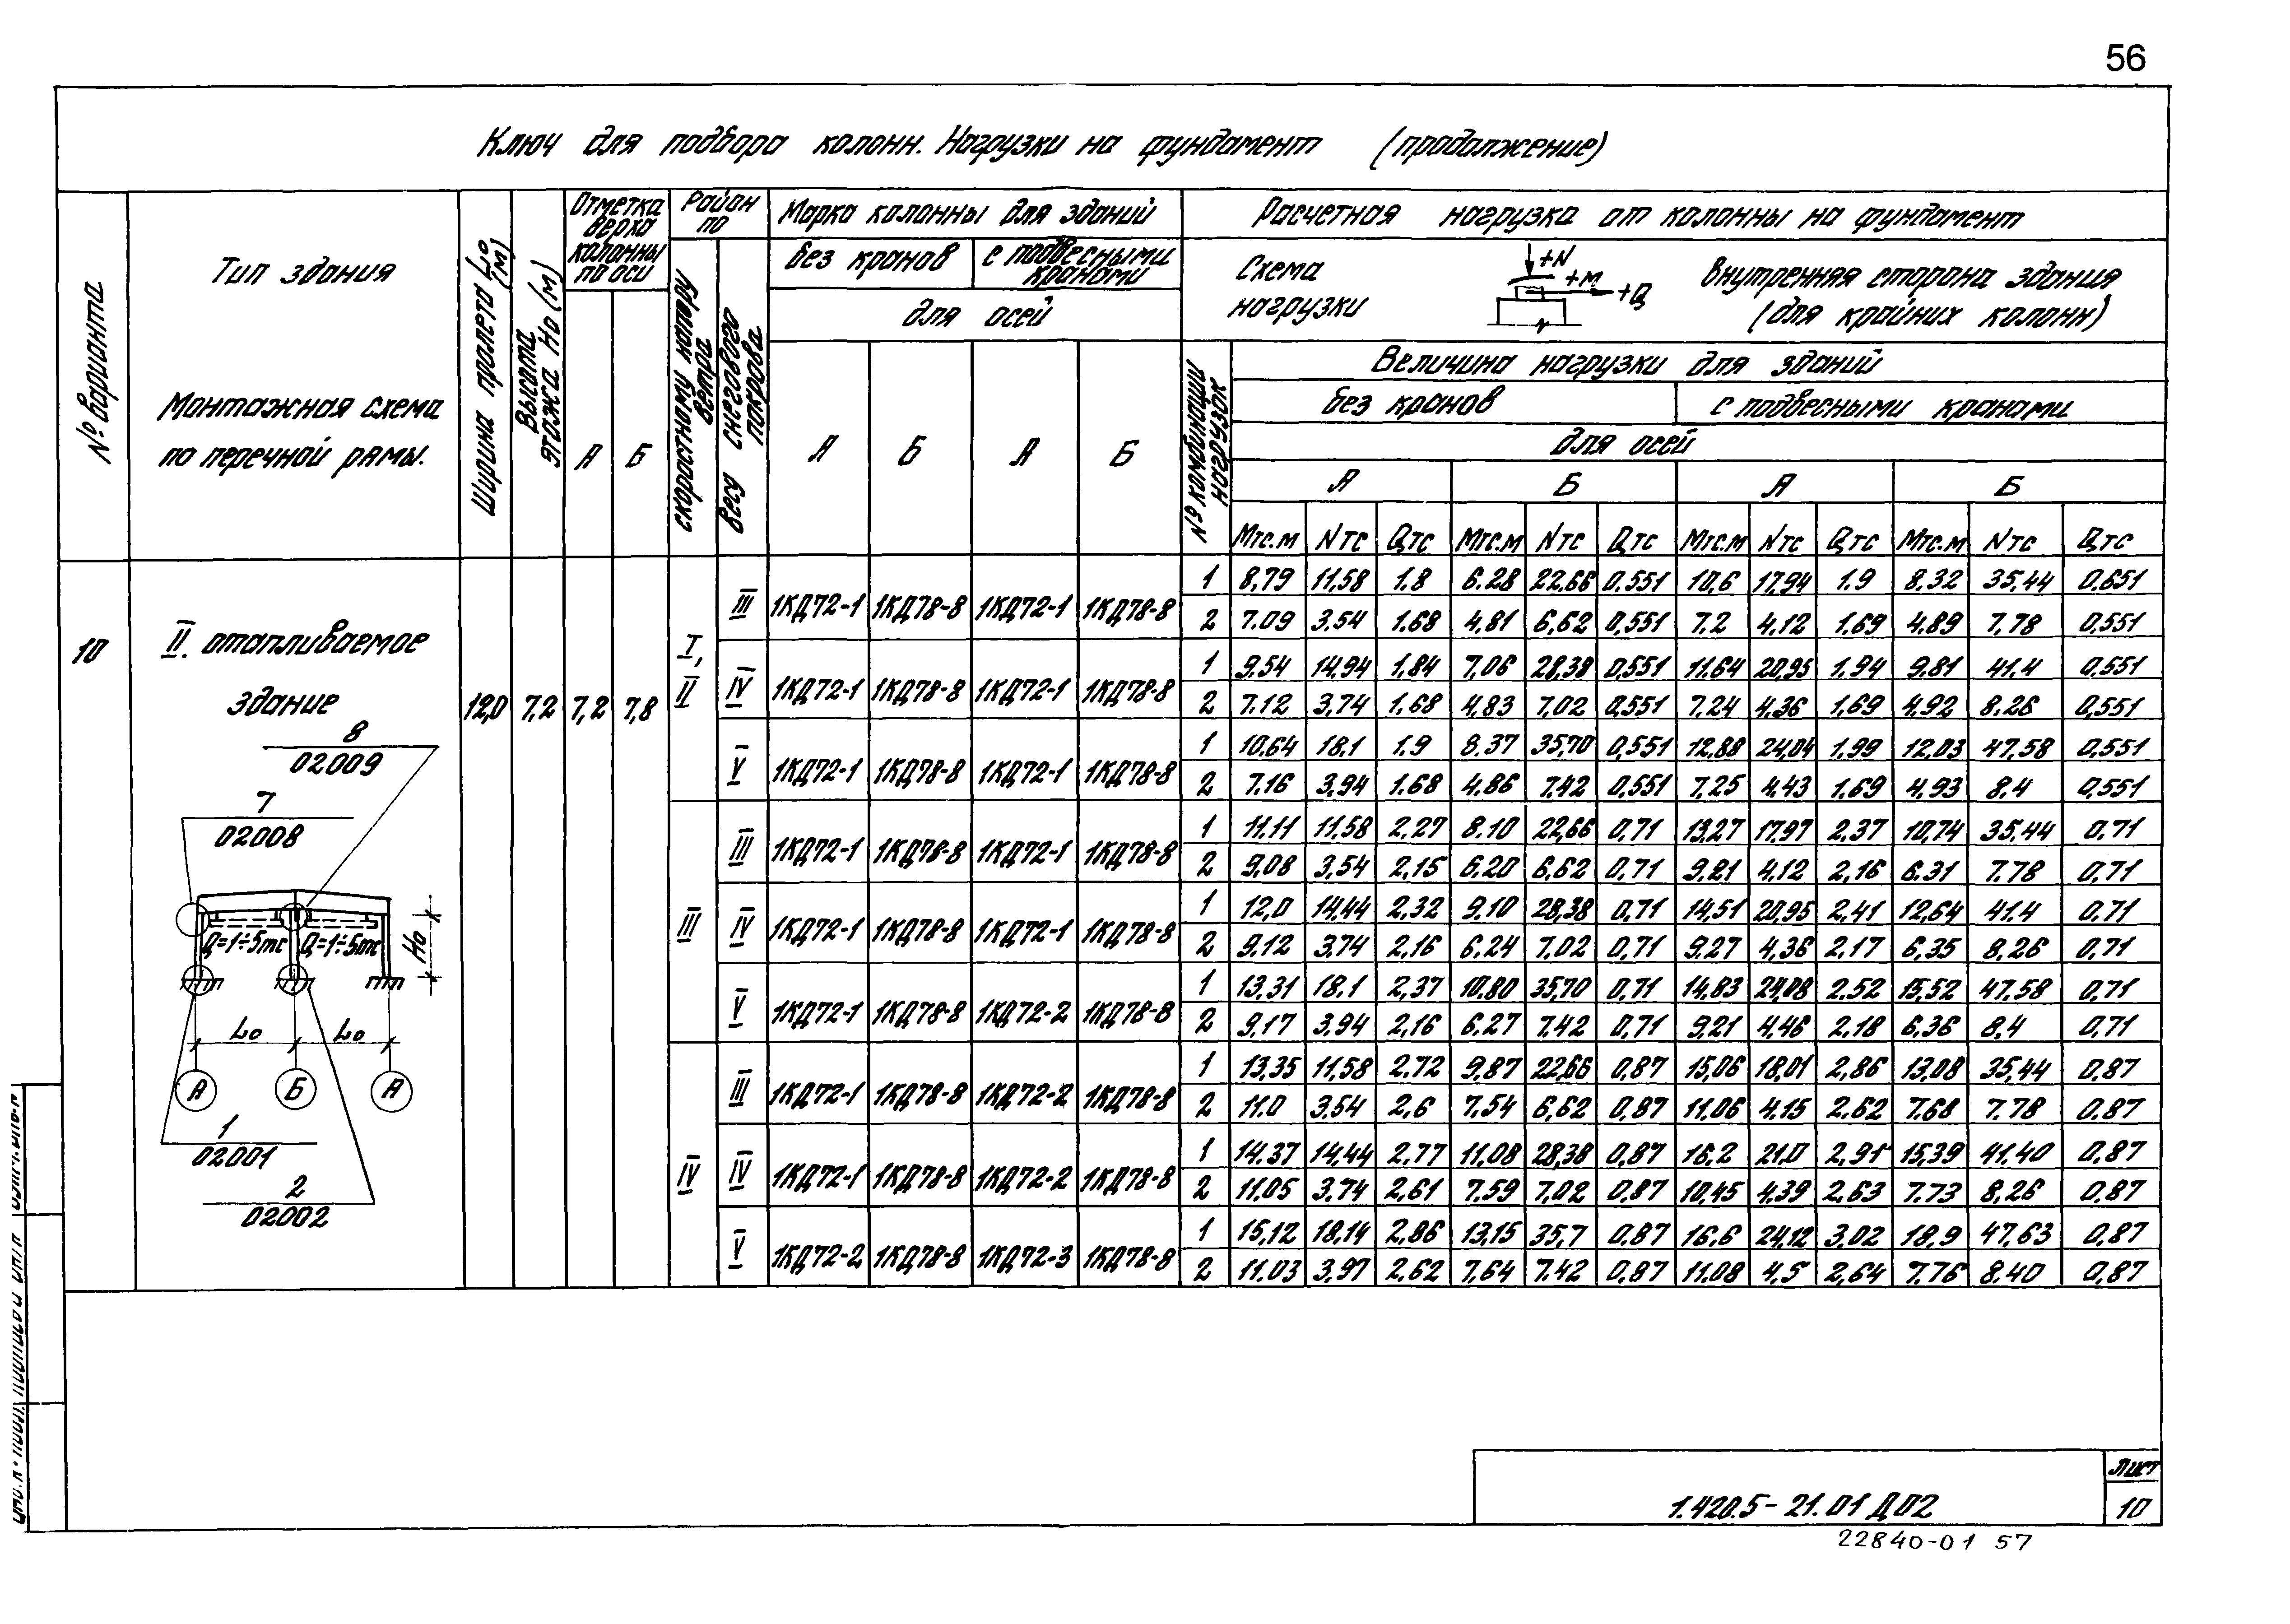 56
Ключ для подбора колонн. Нагрузки на фундамент (продолжение)
№ варианта
Тип здания
Монтажная схема
поперечной рамы.
Ширина пролета Lо (м)
Высота этажа Hо (м)
Отметка верха колонны по оси
А Б
Район по
скоростному напору ветра
весу снегового покрова
Марка колонны для зданий
без кранов с подвесными кранами
для осей
А Б А Б
Расчетная нагрузка от колонны на фундамент
Схема нагрузки
+N
+M
+Q
внутренняя сторона здания
(для крайних колонн)
№ комбинации нагрузок
Величина нагрузки для зданий
без кранов с подвесными кранами
для осей
А Б А Б
Мтс.м Nтс Qтс Мтс.м Nтс Qтс Мтс.м Nтс Qтс Мтс.м Nтс Qтс
10
II. отапливаемое
здание
12,0 7,2 7,2 7,8
8
02009
7
02008
Q=1÷5тс Q=1÷5тс
Hо
Lо Lо
А Б А
1
02001
2
02002
I, II
III 1КД72-1 1КД78-8 1КД72-1 1КД78-8
1 8,79 11,58 1.8 6.28 22,66 0,551 10,6 17,94 1.9 8.32 35,44 0.651
2 7.09 3.54 1.68 4.81 6,62 0,551 7.2 4,12 1,69 4,89 7,78 0,551
IV 1КД72-1 1КД78-8 1КД72-1 1КД78-8
1 9.54 14,94 1,84 7,06 28,38 0,551 11,64 20,95 1.94 9.81 41.4 0,551
2 7.12 3,74 1,68 4,83 7,02 0,551 7,24 4,36 1,69 4,92 8.26 0,551
V 1КД72-1 1КД78-8 1КД72-1 1КД78-8
1 10,64 18.1 1.9 8.37 35,70 0,551 12,88 24,04 1.99 12,03 47.58 0,551
2 7.16 3,94 1.68 4.86 7,42 0,551 7,25 4.43 1.69 4,93 8.4 0,551
III
III 1КД72-1 1КД78-8 1КД72-1 1КД78-8
1 11,11 11,58 2,27 8.10 22,66 0,71 13,27 17,97 2,37 10,74 35.44 0,71
2 9,08 3,54 2,15 6.20 6,62 0,71 9,21 4.12 2,16 6.31 7.78 0,71
IV 1КД72-1 1КД78-8 1КД72-1 1КД78-8
1 12,0 14,44 2,32 9.10 28,38 0,71 14,51 20,95 2,41 12,64 41.4 0.71
2 9,12 3,74 2,16 6,24 7,02 0,71 9,27 4,36 2,17 6,35 8,26 0,71
V 1КД72-1 1КД78-8 1КД72-2 1КД78-8
1 13,31 18.1 2,37 10,80 35,70 0,71 14,83 24,08 2.52 15,52 47.58 0,71
2 9,17 3.94 2,16 6.27 7.42 0,71 9,21 4.46 2.18 6.36 8.4 0,71
IV
III 1КД72-1 1КД78-8 1КД72-2 1КД78-8
1 13,35 11,58 2.72 9,87 22,66 0,87 15,06 18,01 2,86 13,08 35,44 0.87
2 11.0 3.54 2,6 7.54 6,62 0,87 11,06 4.15 2,62 7.68 7.78 0.87
IV 1КД72-1 1КД78-8 1КД72-2 1КД78-8
1 14.37 14,44 2.77 11,08 28,38 0,87 16.2 21,0 2,91 15,39 41.40 0.87
2 11.05 3.74 2,61 7.59 7,02 0,87 10,45 4.39 2,63 7.73 8,26 0,87
V 1КД72-2 1КД78-8 1КД72-3 1КД78-8
1 15,12 18,14 2,86 13,15 35,7 0,87 16.6 24,12 3.02 18,9 47.63 0,87
2 11.03 3,97 2,62 7,64 7.42 0,87 11.08 4,5 2,64 7.76 8.40 0,87
1.420.5-21.01 Д02
Лист
10
22840-01 57